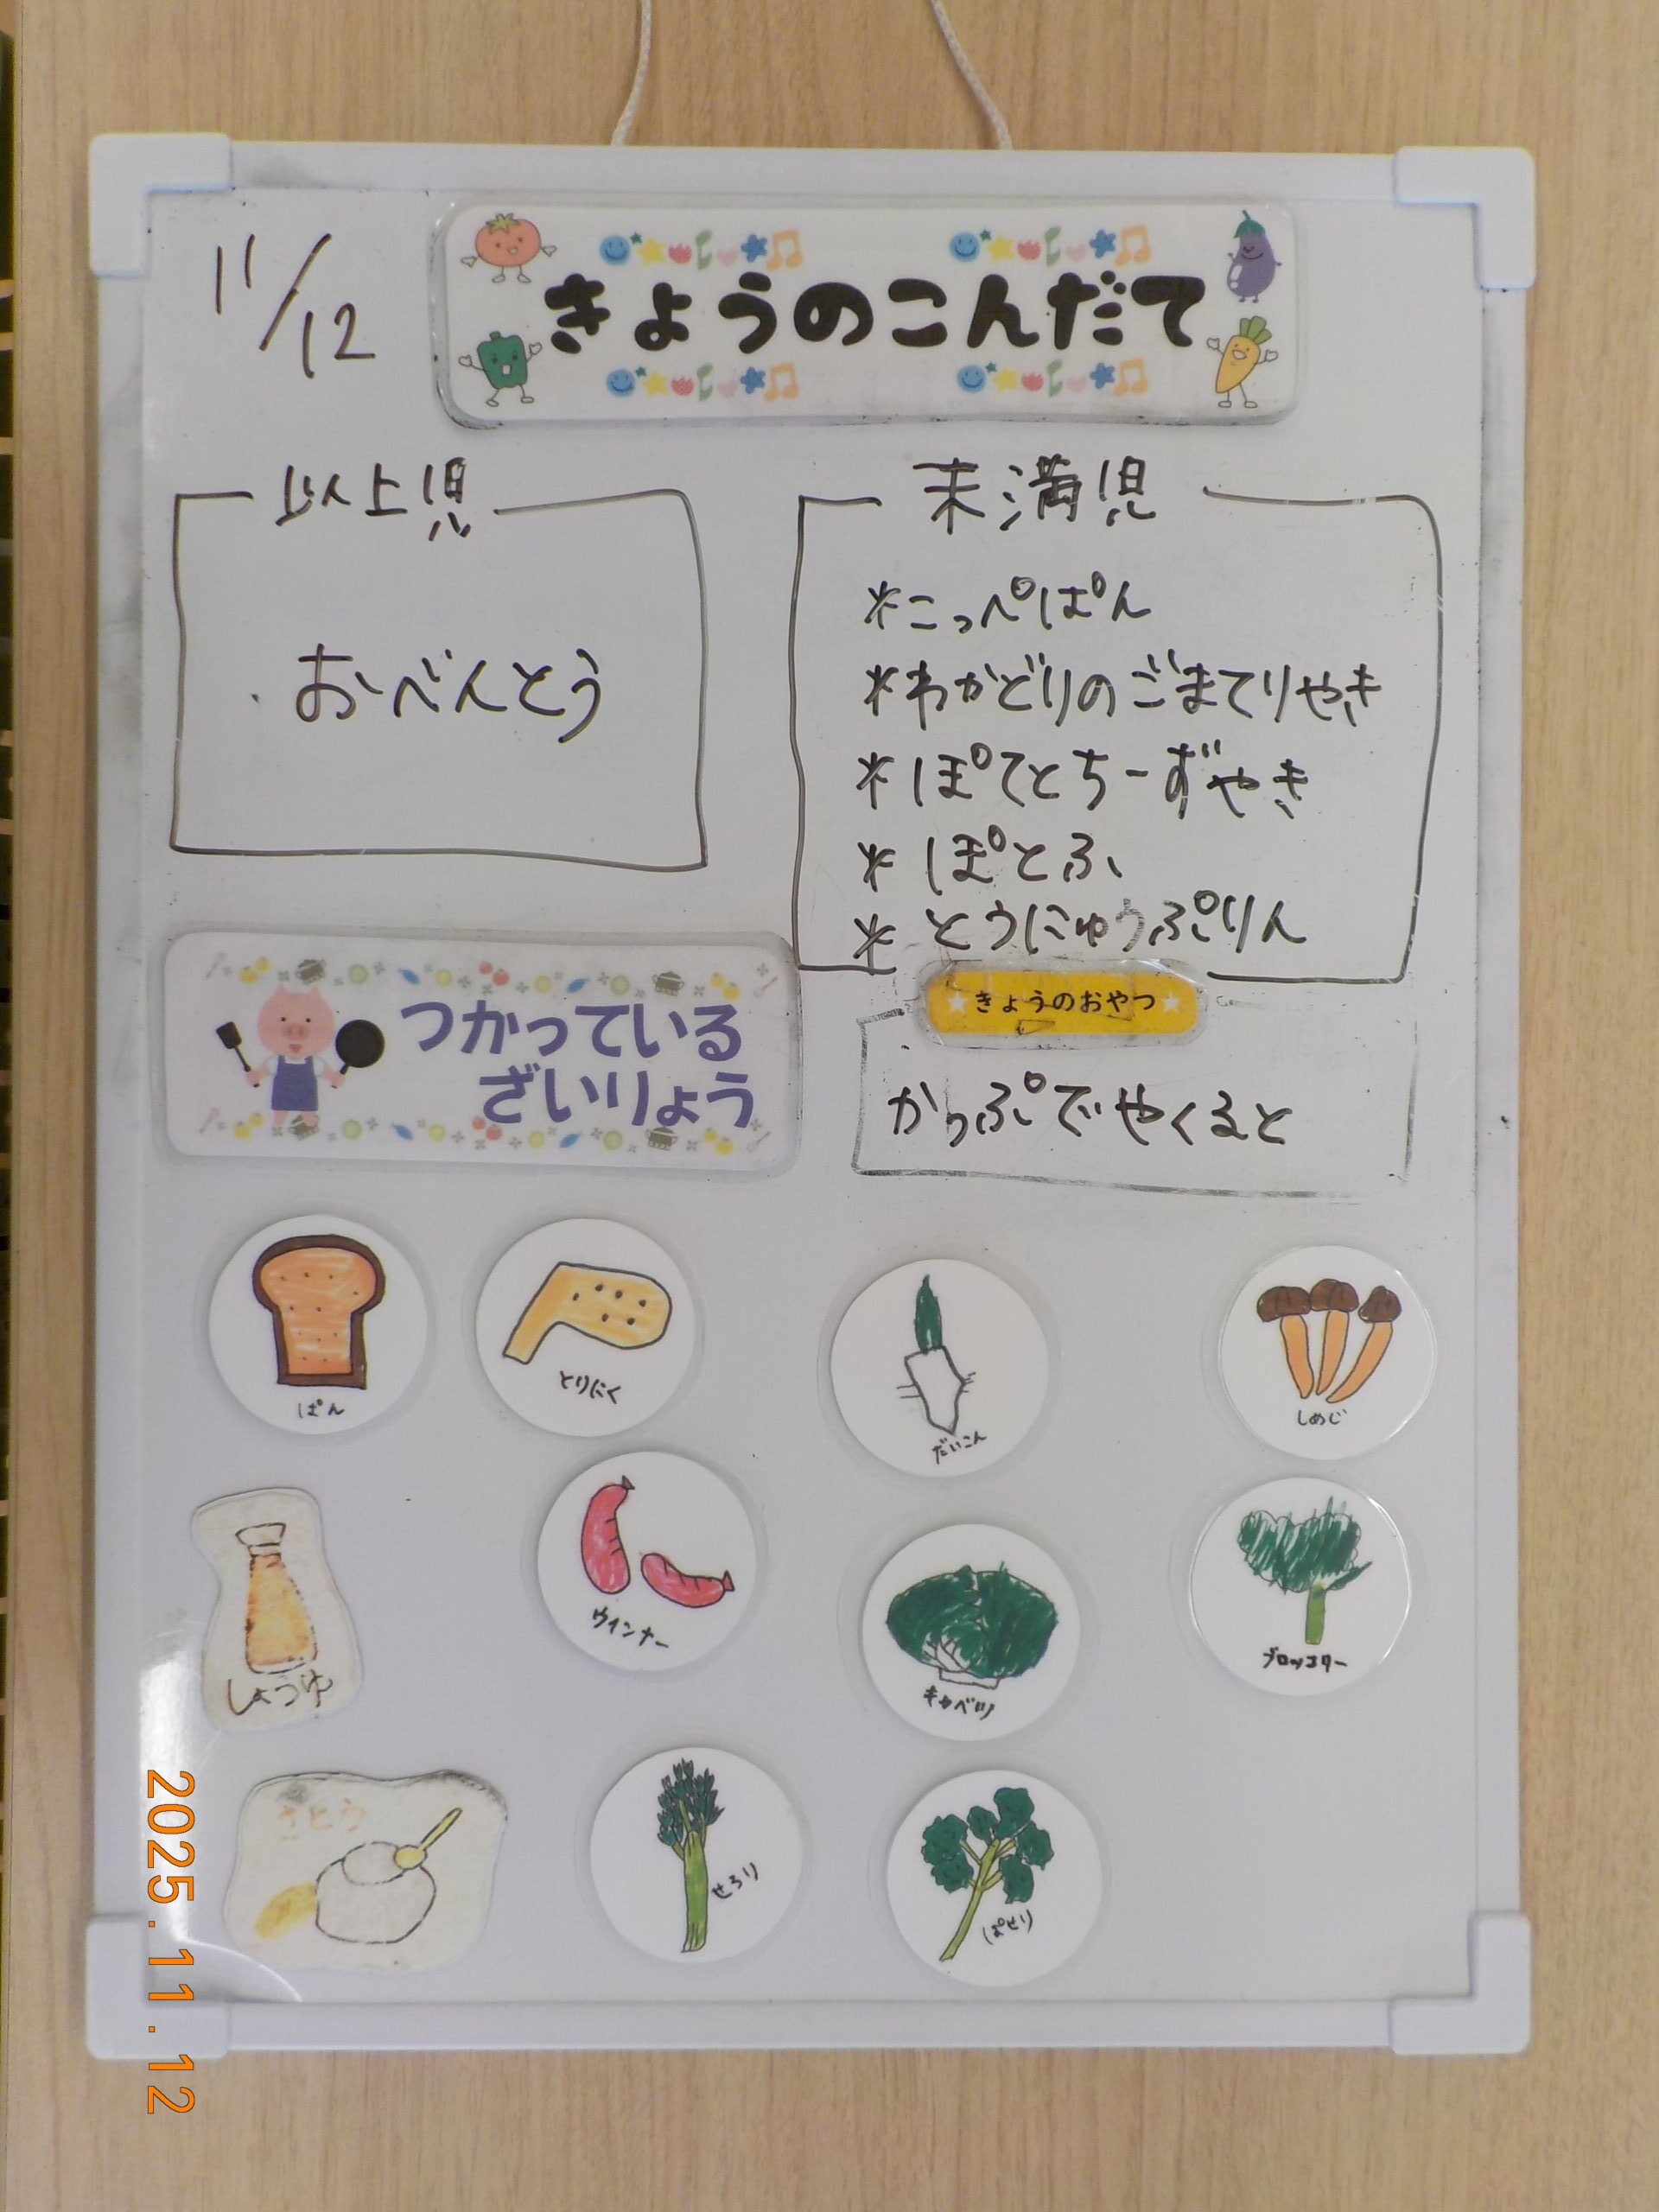 11/12
きょうのこんだて
以上児
・おべんとう
未満児
*こっぺぱん
*わかどりのごまてりやき
*ぽてとちーずやき
*ぽとふ
*とうにゅうぷりん
つかっている
ざいりょう
きょうのおやつ
かっぷでやくると
ぱん
とりにく
だいこん
しめじ
しょうゆ
ウインナー
キャベツ
ブロッコリー
さとう
せろり
ぱせり
2025.11.12